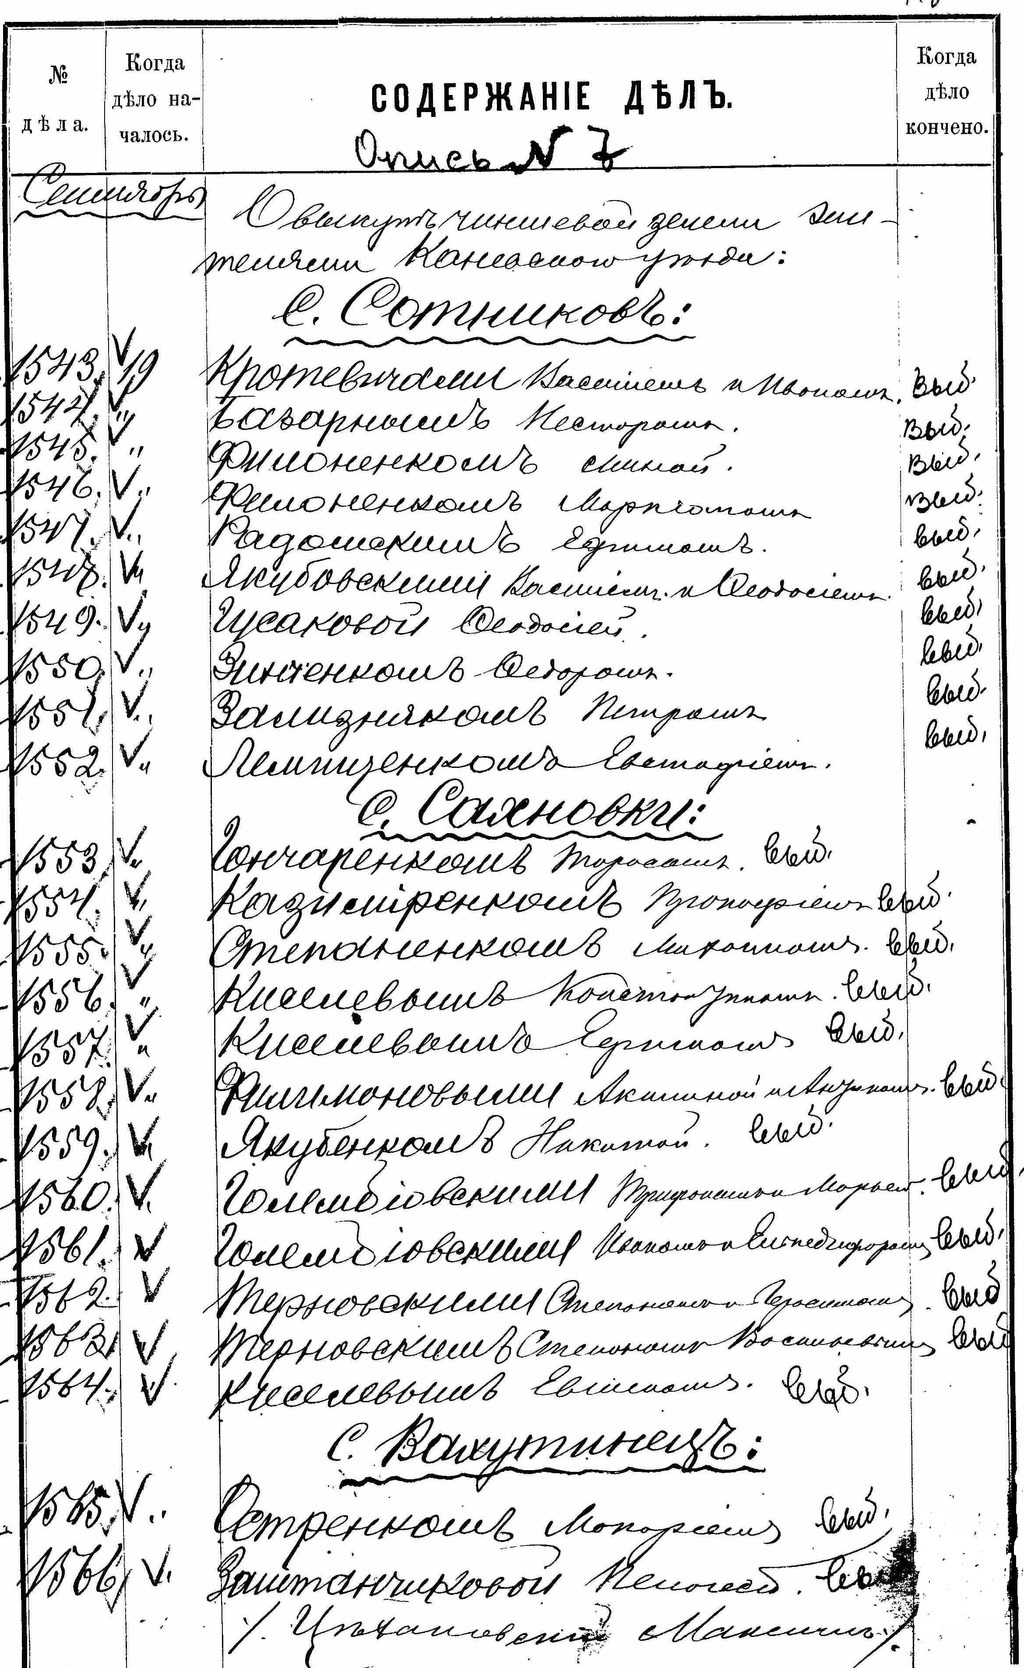 № дѣла.
Когда дѣло началось.
СОДЕРЖАНІЕ ДѢЛЪ.
Когда дѣло кончено.
Опись N 7
Сентябрь
О выкупѣ чиншевой земли жи-
телями Каневского уѣзда:
С. Сотниковъ:
1543. V 19 Кротевичами Василіемъ и Иваномъ. выд.
1544. V " Базарнымъ Несторомъ. выд.
1545. V " Филоненкомъ Миной. выд.
1546. V " Филоненкомъ выд.
1547. V " Радомскимъ Ефимомъ. выд.
1548. V " Якубовскими Василіем. и Феодосіемъ. выд.
1549. V " Гусаковой Феодосіей. выд.
1550. V " Зинченкомъ Федоромъ. выд.
1551. V " Зализнякомъ Петромъ выд.
1552. V " Евстафіемъ. выд.
С. Сахновки:
1553. V " Гончаренкомъ Тарасомъ. выд.
1554. V " Казимиренкомъ Прокофіемъ выд.
1555. V " Степаненкомъ Михаиломъ. выд.
1556. V " Киселевымъ Константиномъ. выд.
1557. V " Киселевымъ Ефимомъ выд.
1558. V " Филимоновыми Акилиной и выд.
1559. V " Якубенкомъ Никитой. выд.
1560. V. Голембіовскими Трифономъ и Марьей. выд.
1561. V Голембіовскими Иваномъ и выд.
1562. V Терновскими Степаномъ и Герасимомъ. выд
1563. V Терновскимъ Степаномъ Васильевымъ выд
1564. V Киселевымъ выд.
С. Вахутинецъ:
1565. V " Остренкомъ Макаріемъ выд.
1566. V. Заштанчиковой выд
/. Цѣхановскій Максимъ /.